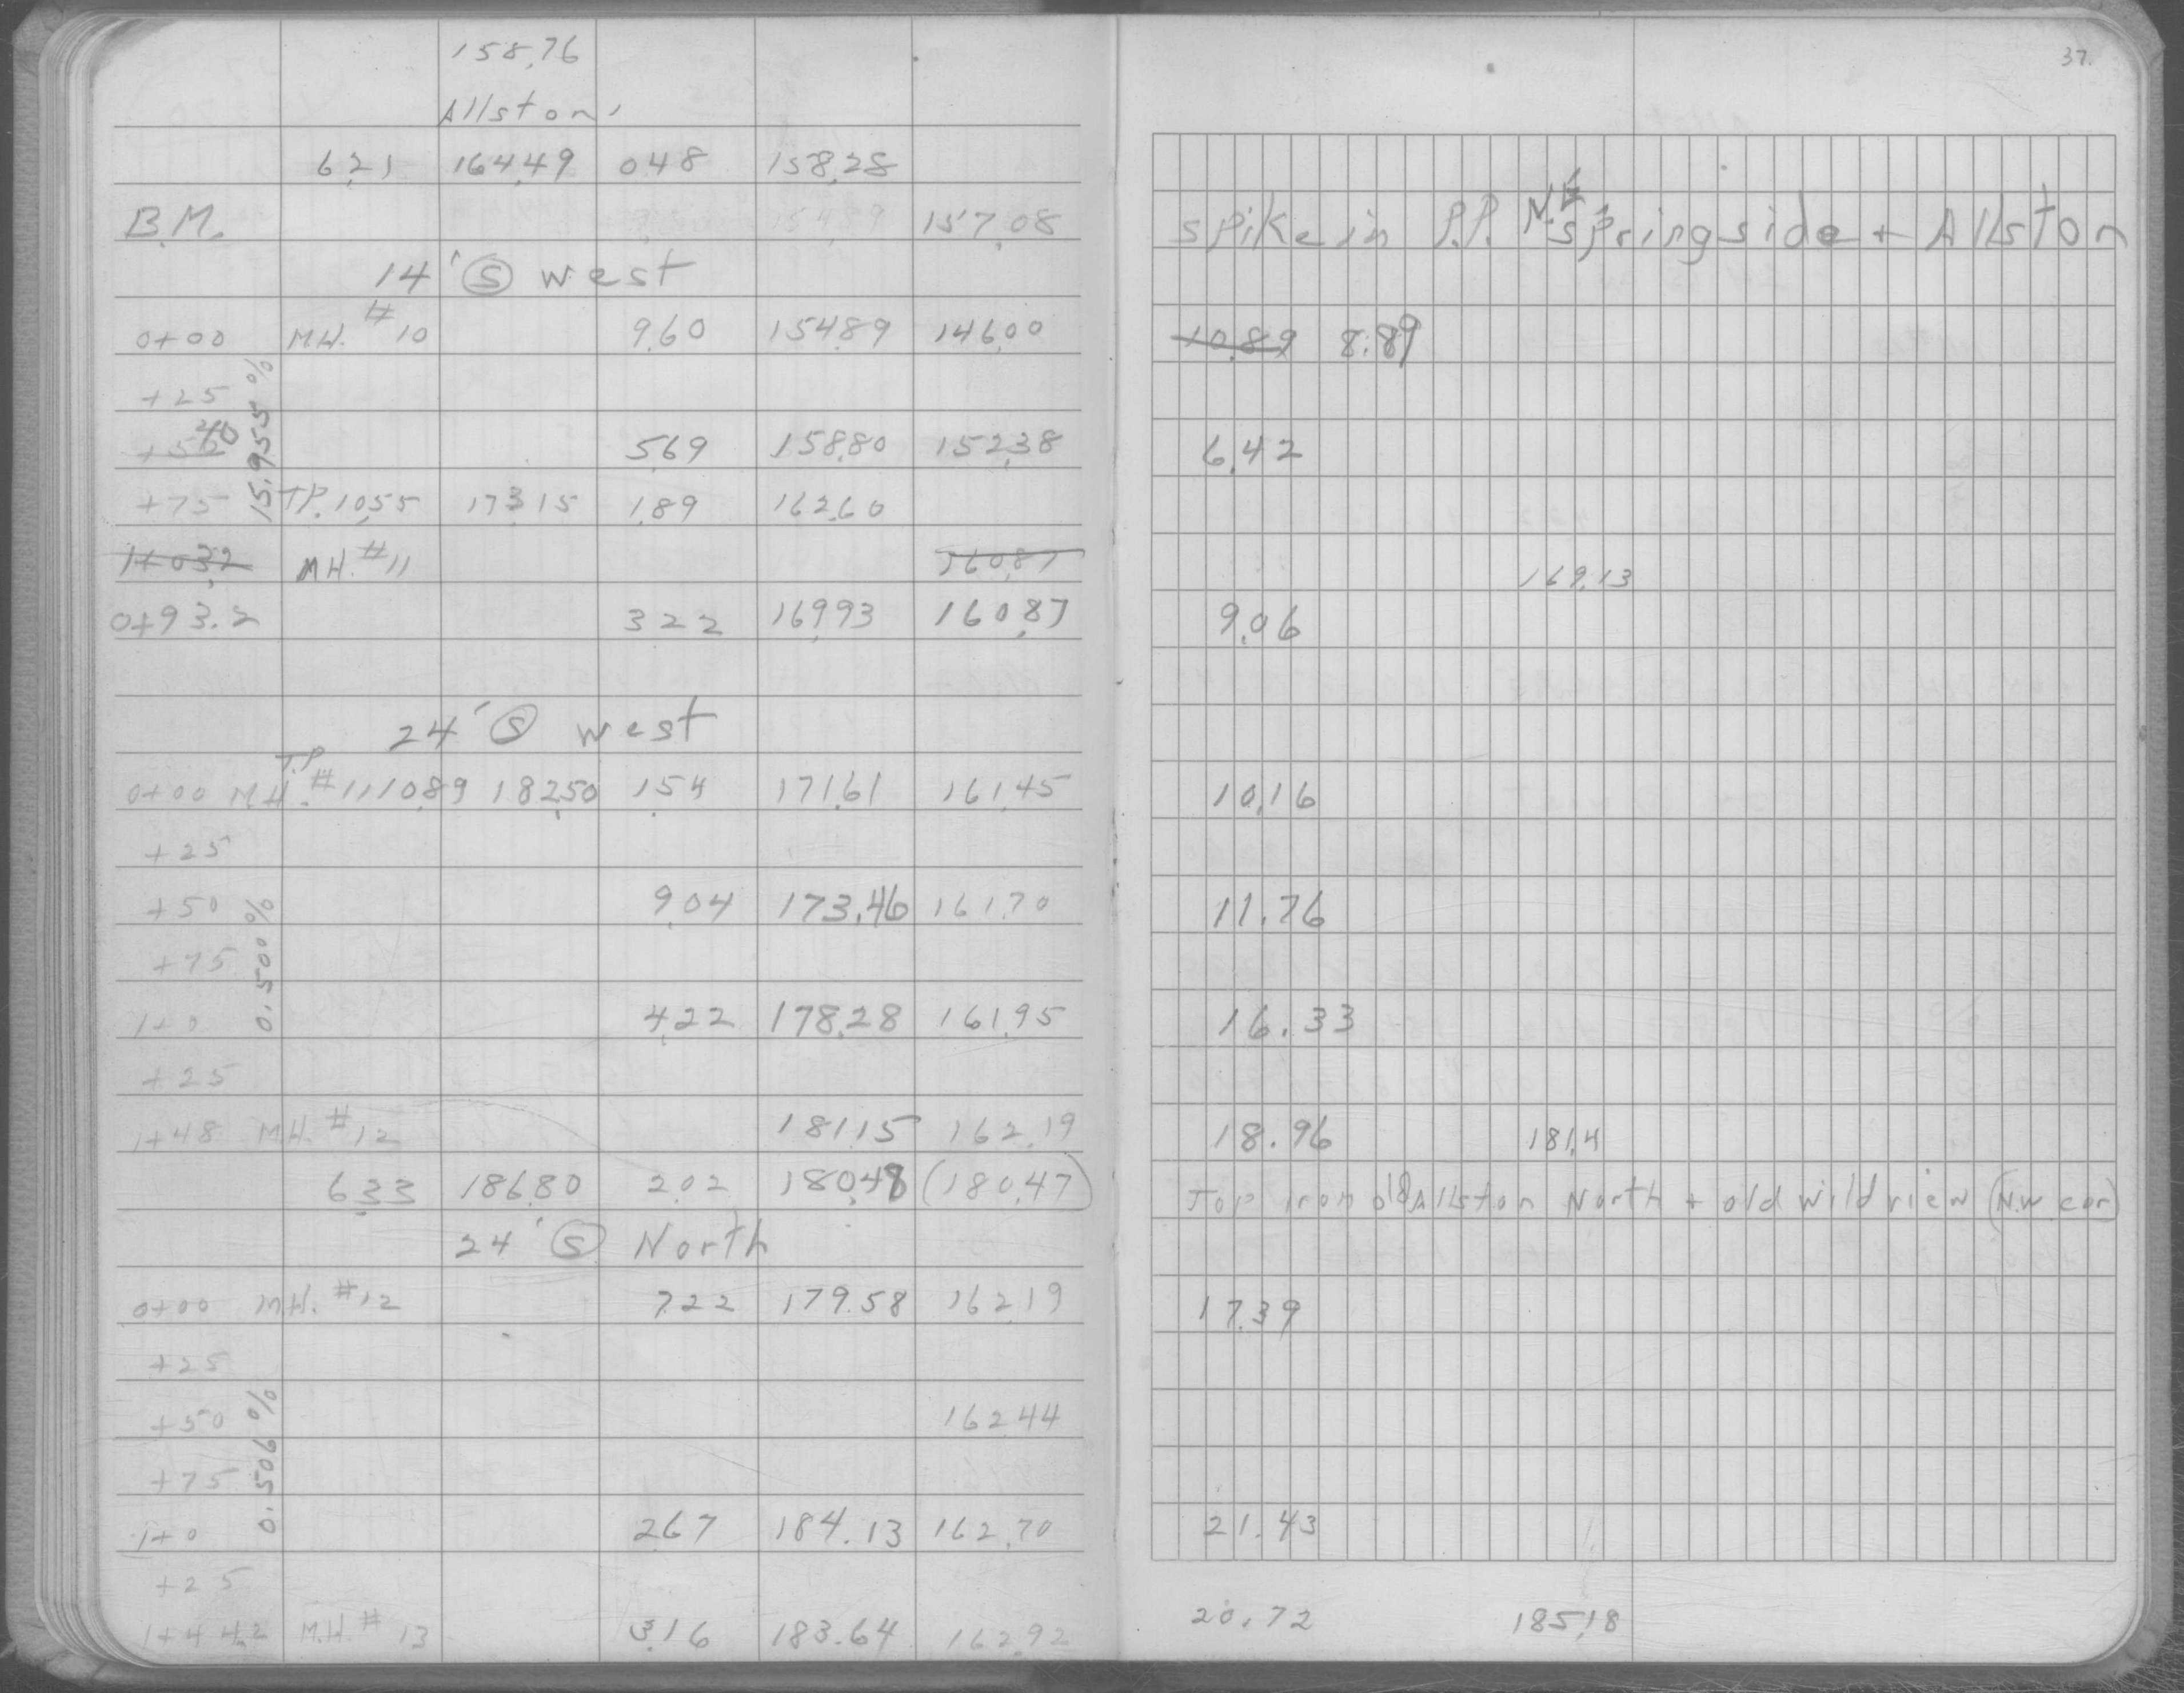 37.
158.76
Allston
6.21 164.49 0.48 158.28
B.M. 154.89 157.08 spike in P.P. N.E. Springside + Allston
14' Ⓢ west
0+00 M.H. #10 9.60 154.89 146.00 10.89 8.89
+25
+52 40 5.69 158.80 152.38 6.42
15.955 %
+75 T.P. 10.55 173.15 1.89 162.60
1+03.2 M.H. #11 160.87 169.13
0+93.2 3.22 169.93 160.87 9.06
24' Ⓢ west
T.P.
0+00 M.H. #11 10.89 182.50 1.54 171.61 161.45 10.16
+25
+50 9.04 173.46 161.70 11.76
0.500 %
+75
1+0 4.22 178.28 161.95 16.33
+25
1+48 M.H. #12 181.15 162.19 18.96 181.4
6.33 186.80 2.02 180.48 (180.47) Top iron old Allston North + old Wildview (N.W. cor)
24' Ⓢ North
0+00 M.H. #12 7.22 179.58 162.19 17.39
+25
+50 162.44
0.506 %
+75
1+0 2.67 184.13 162.70 21.43
+25
1+44.2 M.H. #13 3.16 183.64 162.92 20.72 185.18